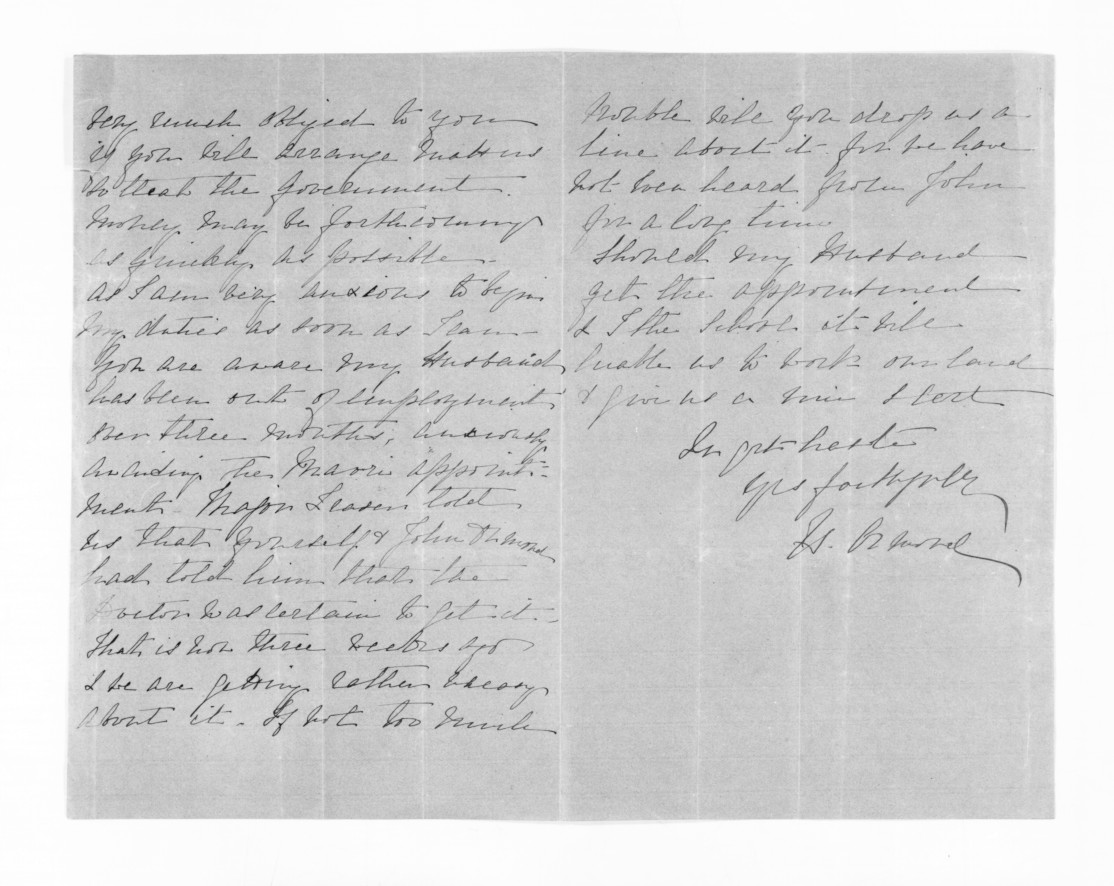 very much obliged to you
if you will arrange matters
so that the Government
money may be forthcoming
as quickly as possible -
as I am very anxious to begin
my duties as soon as I can -
You are aware my Husband
has been out of employment
over three months, anxiously
awaiting the Maori appoint-
ment - Major told
us that yourself & John Ormond
had told him that the
Doctor was certain to get it -
that is now three weeks ago
& we are getting rather uneasy
about it - If not too much
trouble will you drop us a
line about it for we have
not even heard from John
for a long time
Should my Husband
get the appointment
& I the School it will
enable us to work our land
& give us a nice start
In great haste
Yrs faithfully
Ormond